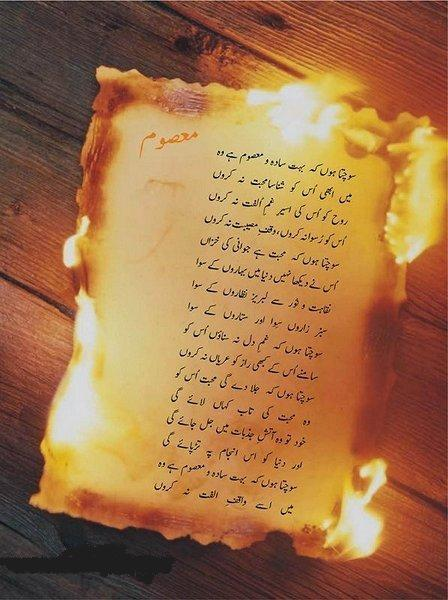 معصوم
سوچتا ہوں کہ بہت سادہ و معصوم ہے وہ
میں ابھی اُس کو شناسا محبت نہ کروں
روح کو اُس کی اسیر غمِ اُلفت نہ کروں
اُس کو رُسوا نہ کروں، وقفِ مصیبت نہ کروں
سوچتا ہوں کہ محبت ہے جوانی کی خزاں
اُس نے دیکھا نہیں دنیا میں بہاروں کے سوا
نکہت و نور سے لبریز نظاروں کے سوا
سبز زاروں سوا اور ستاروں کے سوا
سوچتا ہوں کہ غمِ دل نہ سناؤں اُس کو
سامنے اُس کے کبھی راز کو عریاں نہ کروں
سوچتا ہوں کہ جلا دے گی محبت اُس کو
وہ محبت کی تاب کہاں لائے گی
خود تو وہ آتشِ جذبات میں جل جائے گی
اور دنیا کو اس انجام پہ تڑپائے گی
سوچتا ہوں کہ بہت سادہ و معصوم ہے وہ
میں اسے واقفِ الفت نہ کروں